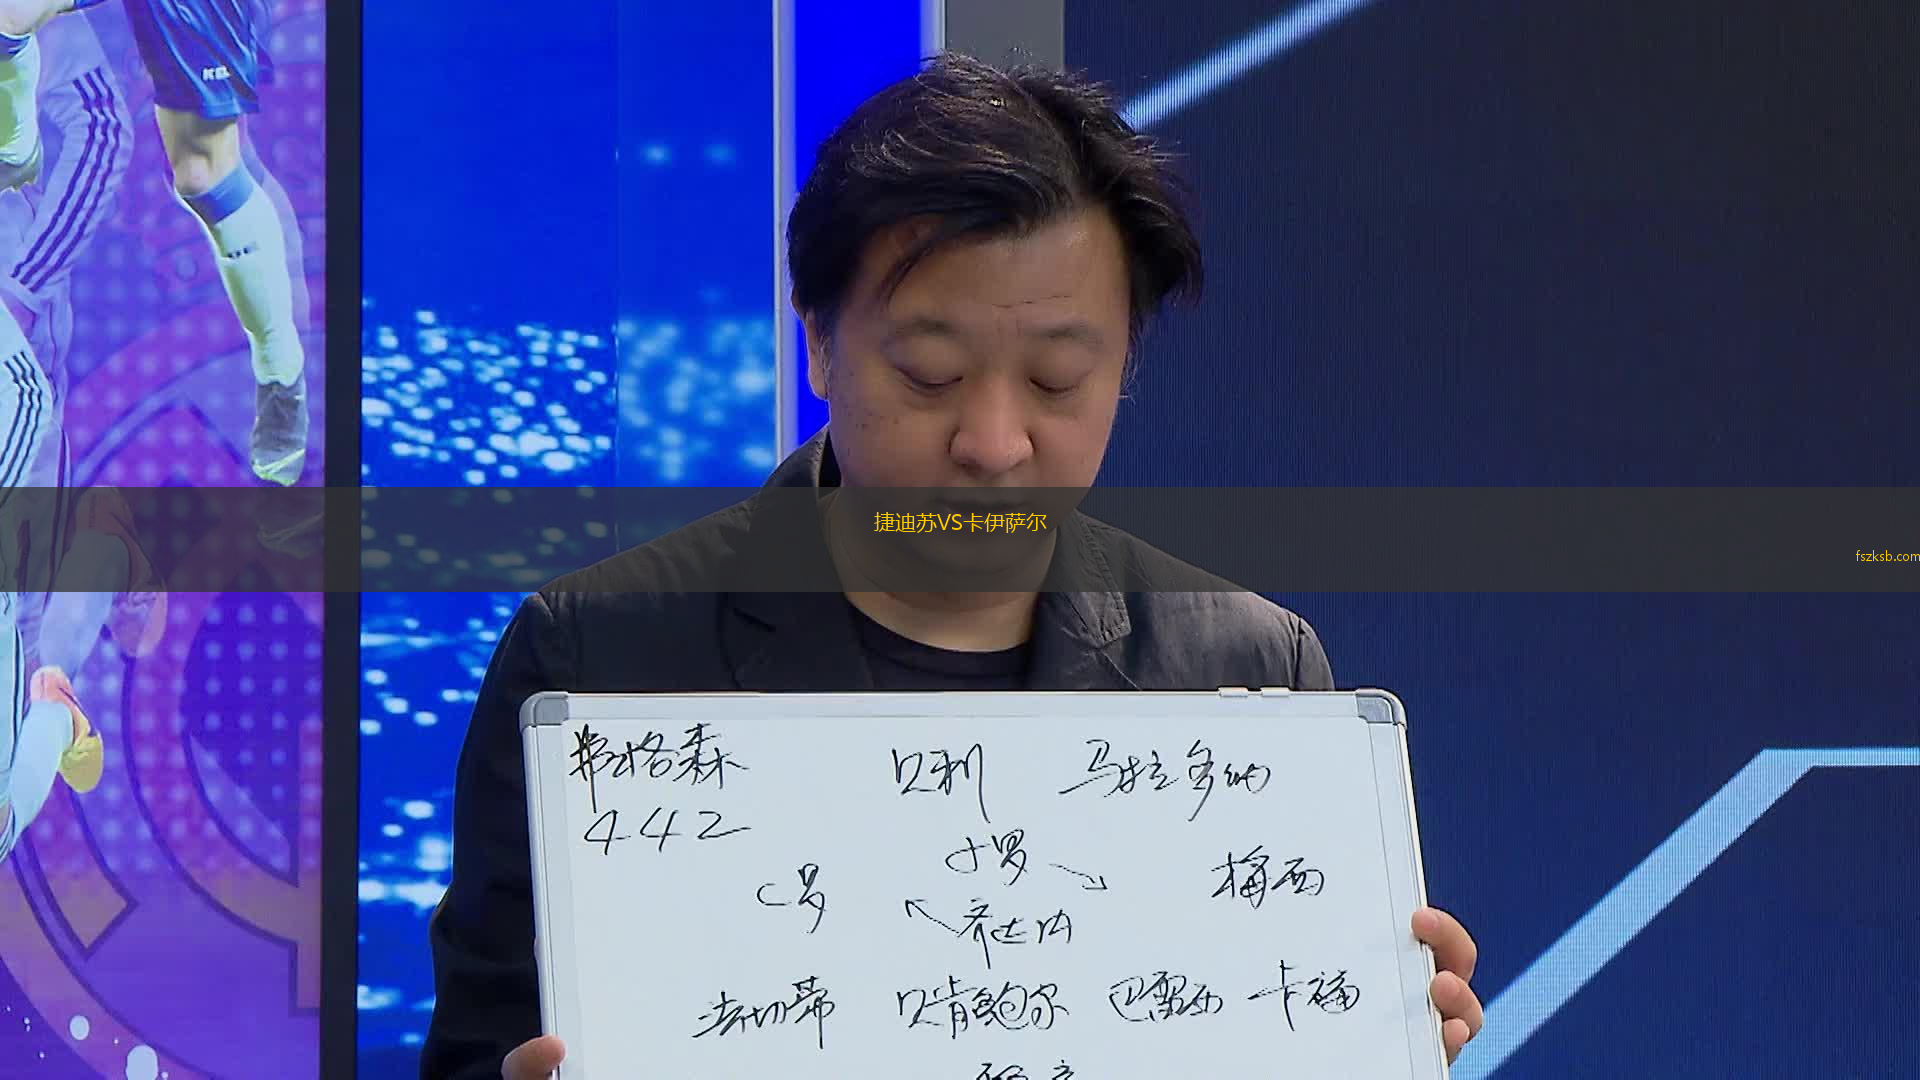 捷迪苏VS卡伊萨尔
fszksb.com
弗格森 贝利 马拉多纳
442
小罗
C罗 梅西
齐达内
法切蒂 贝肯鲍尔 巴雷西 卡福